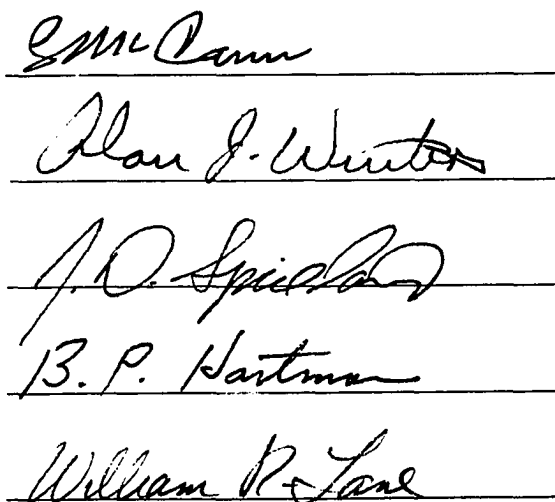 EMcCann
Alan J. Winters
J. D. Spielang
B. P. Hartman
William R. Lane